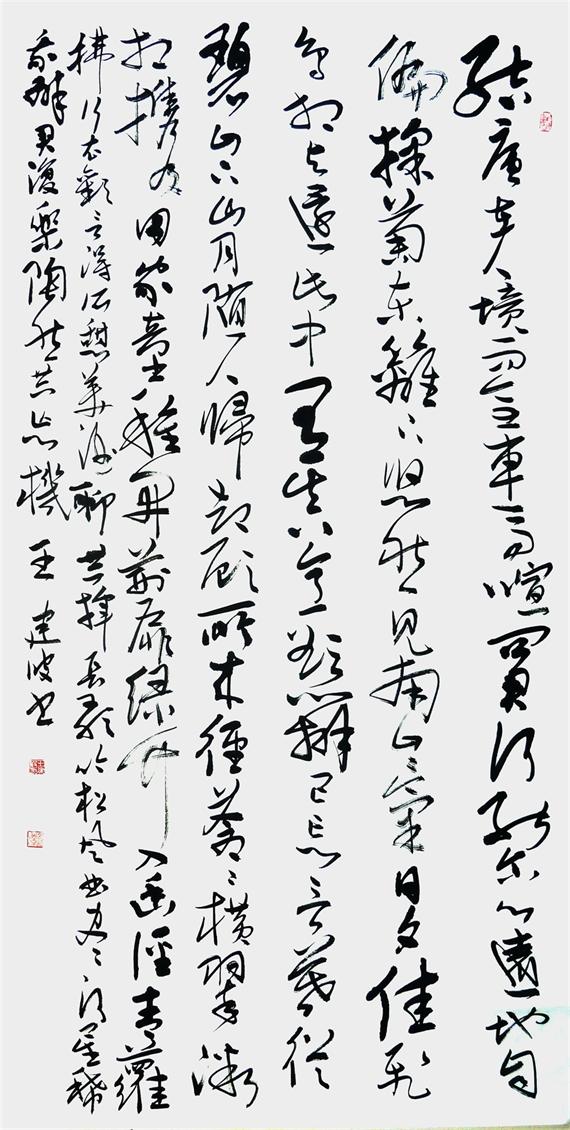 結庐在人境而無車馬喧問君何能尔心遠地自
偏採菊東籬下悠然見南山山氣日夕佳飛
鳥相与還此中有真意欲辨已忘言暮從
碧山下山月随人歸却顧所来徑蒼蒼橫翠微
相携及田家童稚開荆扉绿竹入幽徑青蘿
拂行衣歡言得所憩美酒聊共揮長歌吟松風曲尽河星稀
我醉君復樂陶然共忘機 王建波书